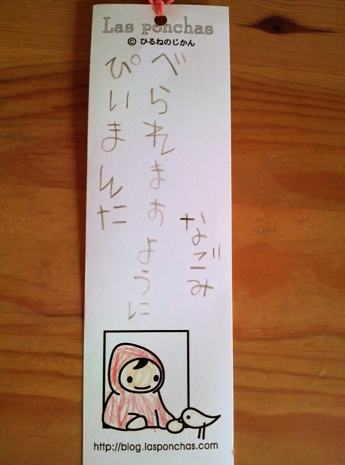 Las ponchas
© ひるねのじかん
ぴいまんた
べられますように
なごみ
http://blog.lasponchas.com